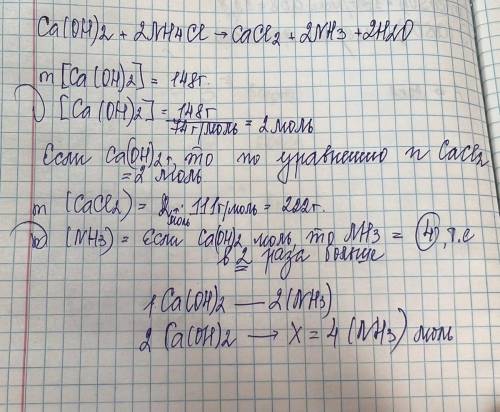 Ca(OH)2 + 2NH4Cl → CaCl2 + 2NH3 + 2H2O
m [Ca(OH)2] = 148г.
[Ca(OH)2] = 148г / 74г/моль = 2моль
Если Ca(OH)2, то по уравнению n CaCl2
= 2 моль
m (CaCl2) = 2 моль · 111г/моль = 222г.
(NH3) = Если Ca(OH)2 моль, то NH3 = 4, т.е
в 2 раза больше
1 Ca(OH)2 — 2(NH3)
2 Ca(OH)2 → X = 4 (NH3) моль